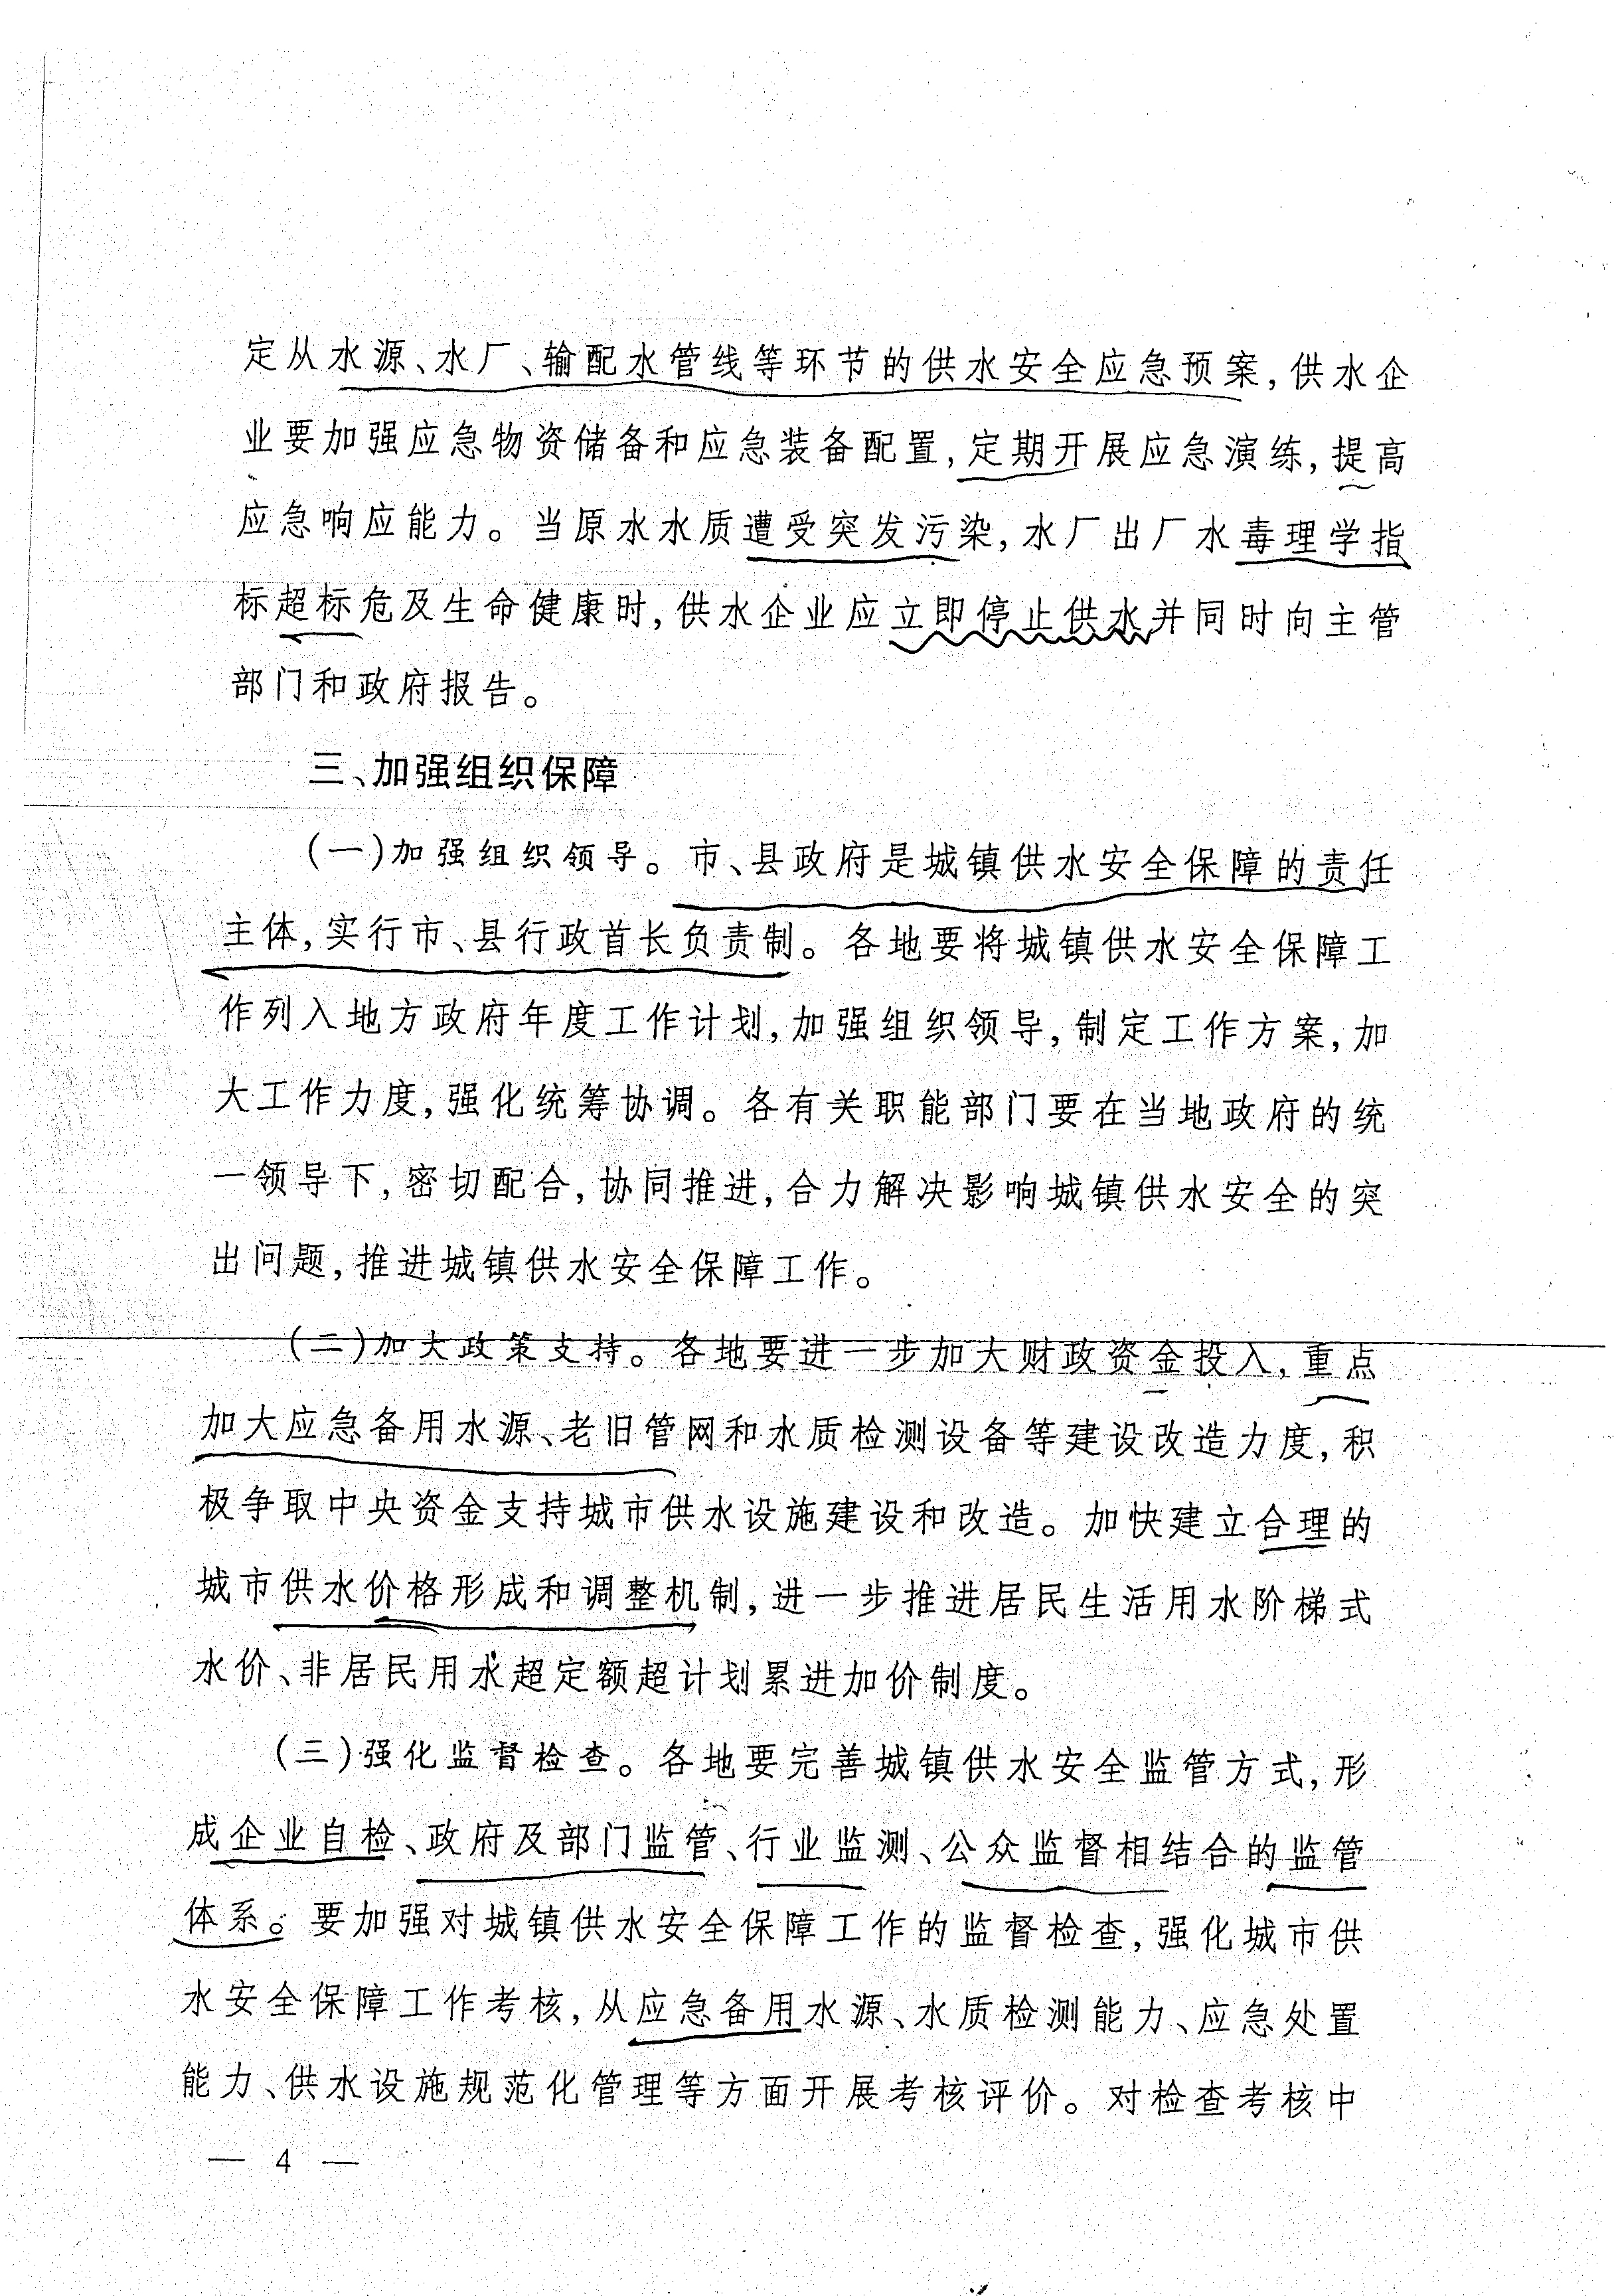 定从水源、水厂、输配水管线等环节的供水安全应急预案,供水企
业要加强应急物资储备和应急装备配置,定期开展应急演练,提高
应急响应能力。当原水水质遭受突发污染,水厂出厂水毒理学指
标超标危及生命健康时,供水企业应立即停止供水并同时向主管
部门和政府报告。
三、加强组织保障
(一)加强组织领导。市、县政府是城镇供水安全保障的责任
主体,实行市、县行政首长负责制。各地要将城镇供水安全保障工
作列入地方政府年度工作计划,加强组织领导,制定工作方案,加
大工作力度,强化统筹协调。各有关职能部门要在当地政府的统
一领导下,密切配合,协同推进,合力解决影响城镇供水安全的突
出问题,推进城镇供水安全保障工作。
(二)加大政策支持。各地要进一步加大财政资金投入,重点
加大应急备用水源、老旧管网和水质检测设备等建设改造力度,积
极争取中央资金支持城市供水设施建设和改造。加快建立合理的
城市供水价格形成和调整机制,进一步推进居民生活用水阶梯式
水价、非居民用水超定额超计划累进加价制度。
(三)强化监督检查。各地要完善城镇供水安全监管方式,形
成企业自检、政府及部门监管、行业监测、公众监督相结合的监管
体系。要加强对城镇供水安全保障工作的监督检查,强化城市供
水安全保障工作考核,从应急备用水源、水质检测能力、应急处置
能力、供水设施规范化管理等方面开展考核评价。对检查考核中
— 4 —